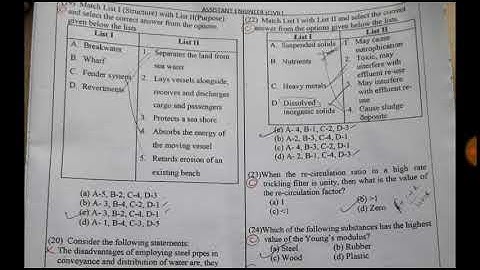 ASSISTANT ENGINEER (CIVIL)
Match List I (Structure) with List II(Purpose)
and select the correct answer from the options
given below the lists
List I
List II
A. Breakwater
B. Wharf
C. Feeder system
D. Revertments
1. Separates the land from
sea water
2. Lays vessels alongside,
receives and discharges
cargo and passengers
3. Protects a sea shore
4. Absorbs the energy of
the moving vessel
5. Retards erosion of an
existing bench
(a) A-5, B-2, C-4, D-3
(b) A-3, B-4, C-2, D-1
(c) A-3, B-2, C-4, D-1
(d) A-1, B-4, C-3, D-5
(20) Consider the following statements:
The disadvantages of employing steel pipes in
conveyance and distribution of water are, they
(22) Match List I with List II and select the correct
answer from the options given below the lists.
List I
List II
A. Suspended solids
B. Nutrients
C. Heavy metals
D. Dissolved
inorganic solids
1. May cause
eutrophication
2. Toxic, may
interfere with
effluent re-use
3. May interfere
with effluent re-
use
4. Cause sludge
deposite
(a) A-4, B-1, C-2, D-3
(b) A-2, B-4, C-3, D-1
(c) A-4, B-3, C-2, D-1
(d) A-2, B-1, C-4, D-3
(23)When the re-circulation ratio in a high rate
trickling filter is unity, then what is the value of
the re-circulation factor?
(a) 1
(b) >1
(c) <1
(d) Zero
(24)Which of the following substances has the highest
value of the Young's modulus?
(a) Steel
(b) Rubber
(c) Wood
(d) Plastic